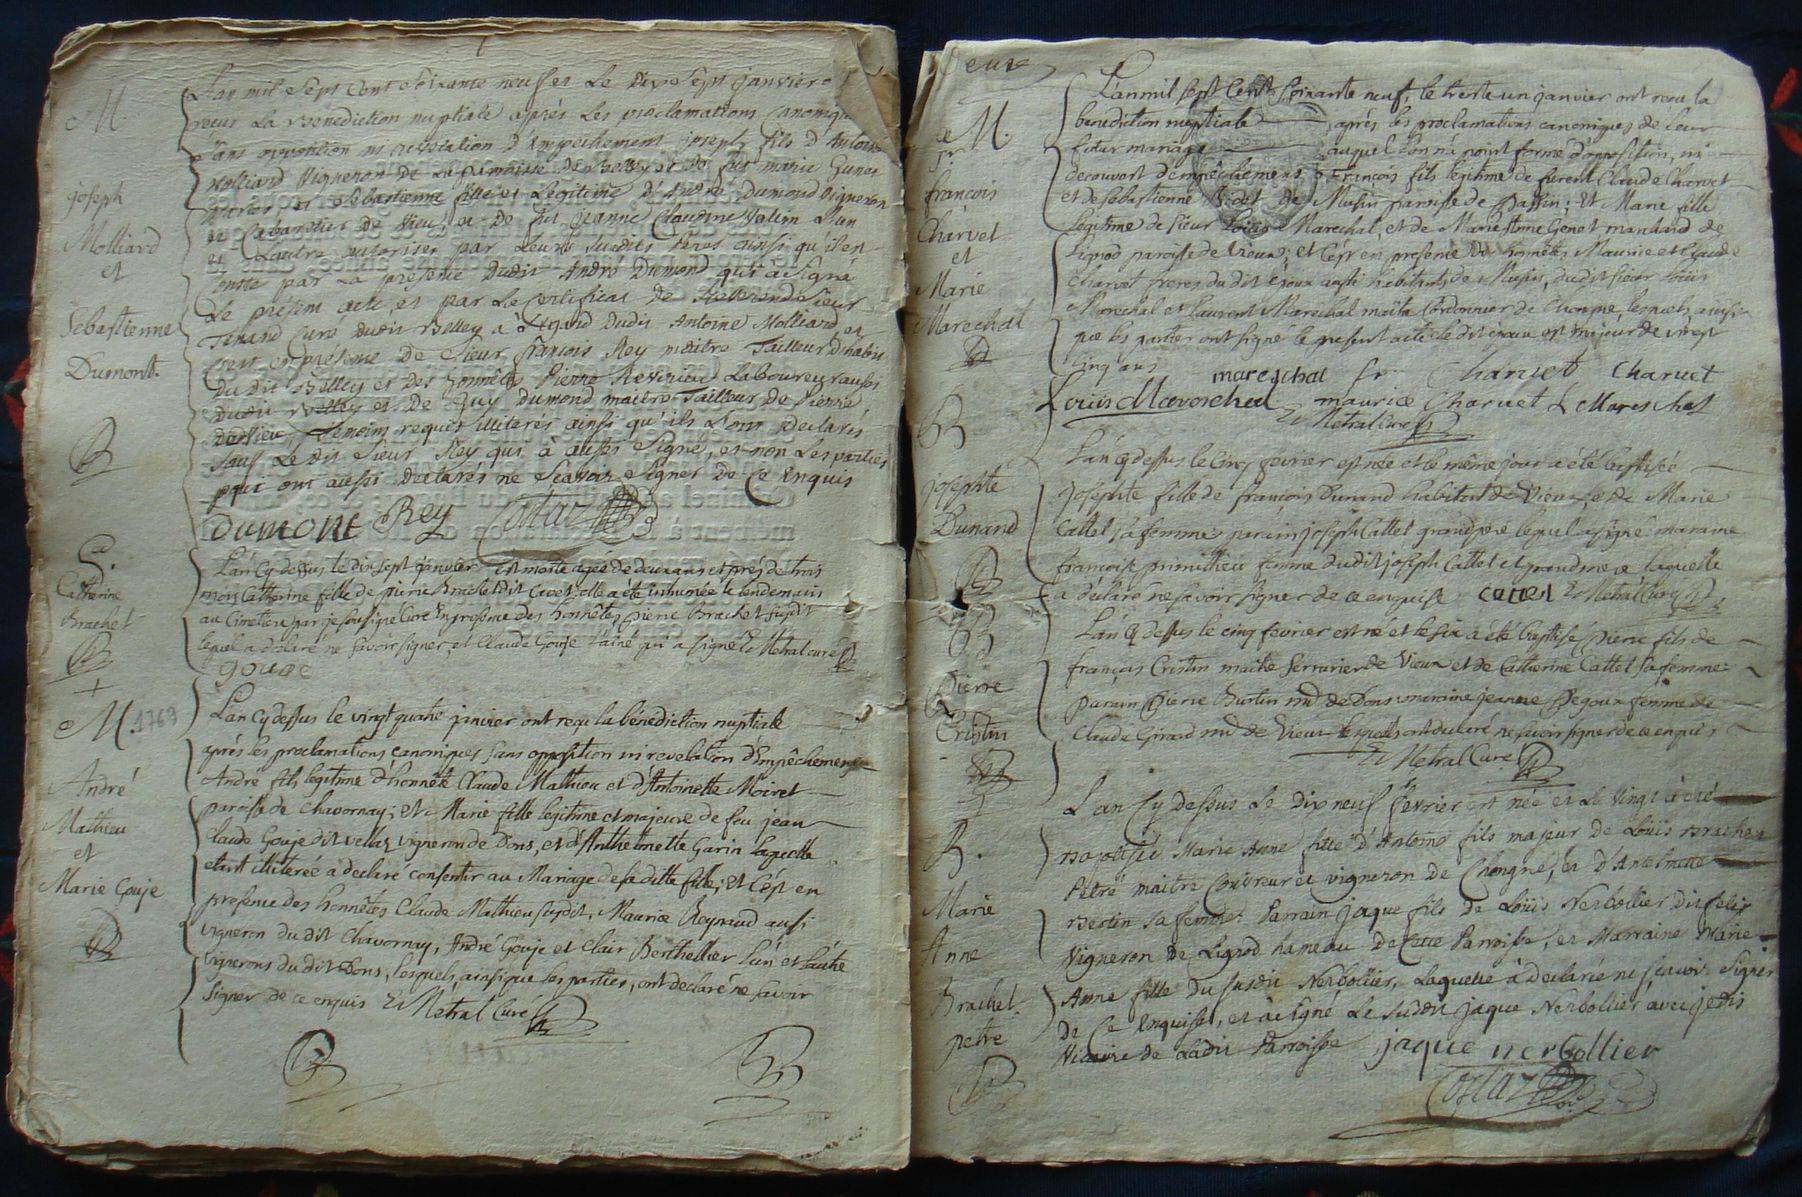 M.
joseph
Molliard
et
Sebastienne
Dumont.
L'an mil sept cent soixante neuf et le dix sept janvier
reçus La Benediction nuptiale après Les proclamations Canoniques
sans opposition ni revelation d'Empechement joseph fils d'Antoine
Molliard Vigneron de La paroisse de Belley et de feue marie
et Sebastienne fille et Legitime d'André Dumond Vigneron
et Cabaretier de Vieu, et de feue Jeanne Claudine L'un
et L'autre autorisés par Leurs susdits Pères ainsi qu'il en
conste par La présence dudit André Dumond qui a signé
Le présent acte, et par Le Certificat de Reverend Sieur
Curé dudit Belley à L'égard dudit Antoine Molliard, et
c'est en présence de Sieur françois Rey maitre Tailleur d'habit
dudit Belley et des honnêtes Pierre Laboureur aussi
dudit Belley et de Guy Dumond maitre Tailleur de Pierre
dudit Vieu, Temoins requis illiterés ainsi qu'ils L'ont Declarés
sauf Le dit Sieur Rey qui à aussi Signé, et non Les parties
qui ont aussi Declarés ne Scavoir Signer De Ce Enquis
Dumont Rey Costaz
S.
Catherine
Brachet
L'an Cy dessus le dix sept janvier est morte agée de deux ans et près de trois
mois Catherine fille de pierre Brachet dit elle a été inhumée le lendemain
au Cimetiere par je soussigné Curé En presence des honnêtes pierre Brachet susdit
lequel a déclaré ne savoir signer, et Claude Gouje l'ainé qui a signé Metral curé
gouge
M. 1769
André
Mathieu
et
Marie Gouje
L'an Cy dessus le vingt quatre janvier ont reçu la bénédiction nuptiale
après les proclamations canoniques sans opposition ni revelation d'Empêchement
André fils legitime d'honnête Claude Mathieu et d'Antoinette Moiret
paroisse de Chavornay; et Marie fille legitime et majeure de feu jean
Claude Gouje dit vellaz vigneron de Dons, et d'Anthelmette Garin laquelle
etant illiterée a declaré consentir au Mariage de sa ditte fille; et C'est en
presence des honnêtes Claude Mathieu susdit, Maurice Reynaud aussi
vigneron du dit Chavornay, André Gouje et Clair Berthellier l'un et l'autre
vignerons du dit Dons, lesquels, ainsi que les parties, ont declaré ne savoir
signer de ce enquis Metral Curé
M.
françois
Charvet
et
Marie
Marechal
L'an mil sept Cent soixante neuf, le trente un janvier ont reçu la
benediction nuptiale après les proclamations canoniques de leur
futur mariage auquel l'on n'a point formé d'opposition, ni
decouvert d'empêchement, François fils legitime de furent Claude Charvet
et de Sebastienne Bodet de Musin paroisse de Passin; Et Marie fille
legitime de sieur Louis Marechal, et de Marie Anne Genet marchand de
Lignod paroisse de Vieux; et C'est en presence des honnêtes Maurice et Claude
Charvet freres du dit Epoux aussi habitants de Musin, du dit sieur Louis
Marechal et Laurent Marechal maitre Cordonnier de Chongne, lesquels, ainsi
que les parties ont signé le present acte le dit époux est majeur de vingt
cinq ans mareschal Charvet Charvet
Louis Mareschal maurice Charvet L Mareschal
Metral Cure
B
josephte
Dunand
L'an Cy dessus le Cinq fevrier est née et le même jour a été baptisée
josephte fille de françois Dunand habitant de Vieux, et de Marie
Cattet sa femme: parain joseph Cattet grandpere lequel a signé maraine
francoise femme dudit joseph Cattet et grandmere laquelle
a déclaré ne savoir signer de ce enquise Catet Metral Curé
B
Pierre
Cristin
L'an Cy dessus le cinq fevrier est né et le six a été baptisé Pierre fils de
françois Cristin maitre Serrurier de Vieux et de Catherine Cattet sa femme:
parain Pierre md de Dons maraine jeanne Pegoux femme de
Claude Girard md de Vieux lesquels ont declaré ne savoir signer de ce enquis
Metral Curé
B.
Marie
Anne
Brachet
petre
L'an Cy dessus Le Dix neuf fevrier est née et Le vingt à été
Baptisée Marie Anne fille d'Antoine fils majeur de Louis Brachet
Petré maitre Couvreur et vigneron de Chongne, et d'Antelmette
Bertin sa femme: Parrain jaque fils de Louis Nerbollier dit felix
Vigneron de Lignod hameau de Cette Parroisse, et Marraine Marie
Anne fille Du susdit Nerbollier, Laquelle à declaré ne scavoir Signer
De Ce Enquise, et à signé Le susdit jaque Nerbollier avec je dis
Vicaire de Ladite Parroisse jaque nerbollier
Costaz